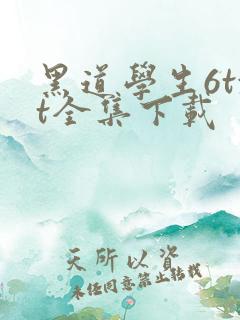 黑道學生6tx
t全集下載
天所以資
未經同意禁止轉載